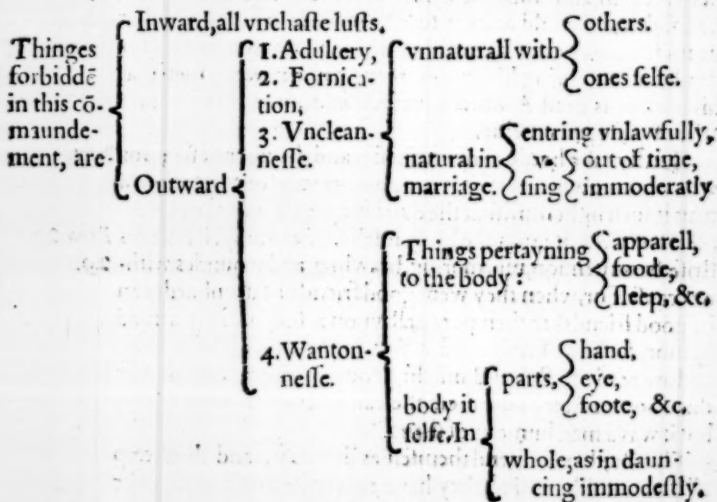 Thinges
forbiddē
in this cō-
maunde-
ment, are
Inward, all vnchaſte luſts.
Outward
1. Adultery,
2. Fornica-
tion,
3. Vnclean-
neſſe.
vnnaturall with
others.
ones ſelfe.
natural in
marriage.
entring vnlawfully,
v-
ſing
out of time,
immoderatly
4. Wanton-
neſſe.
Things pertayning
to the body:
apparell,
foode,
ſleep, &c.
body it
ſelfe. In
parts,
hand,
eye,
foote, &c.
whole, as in daun
cing immodeſtly.